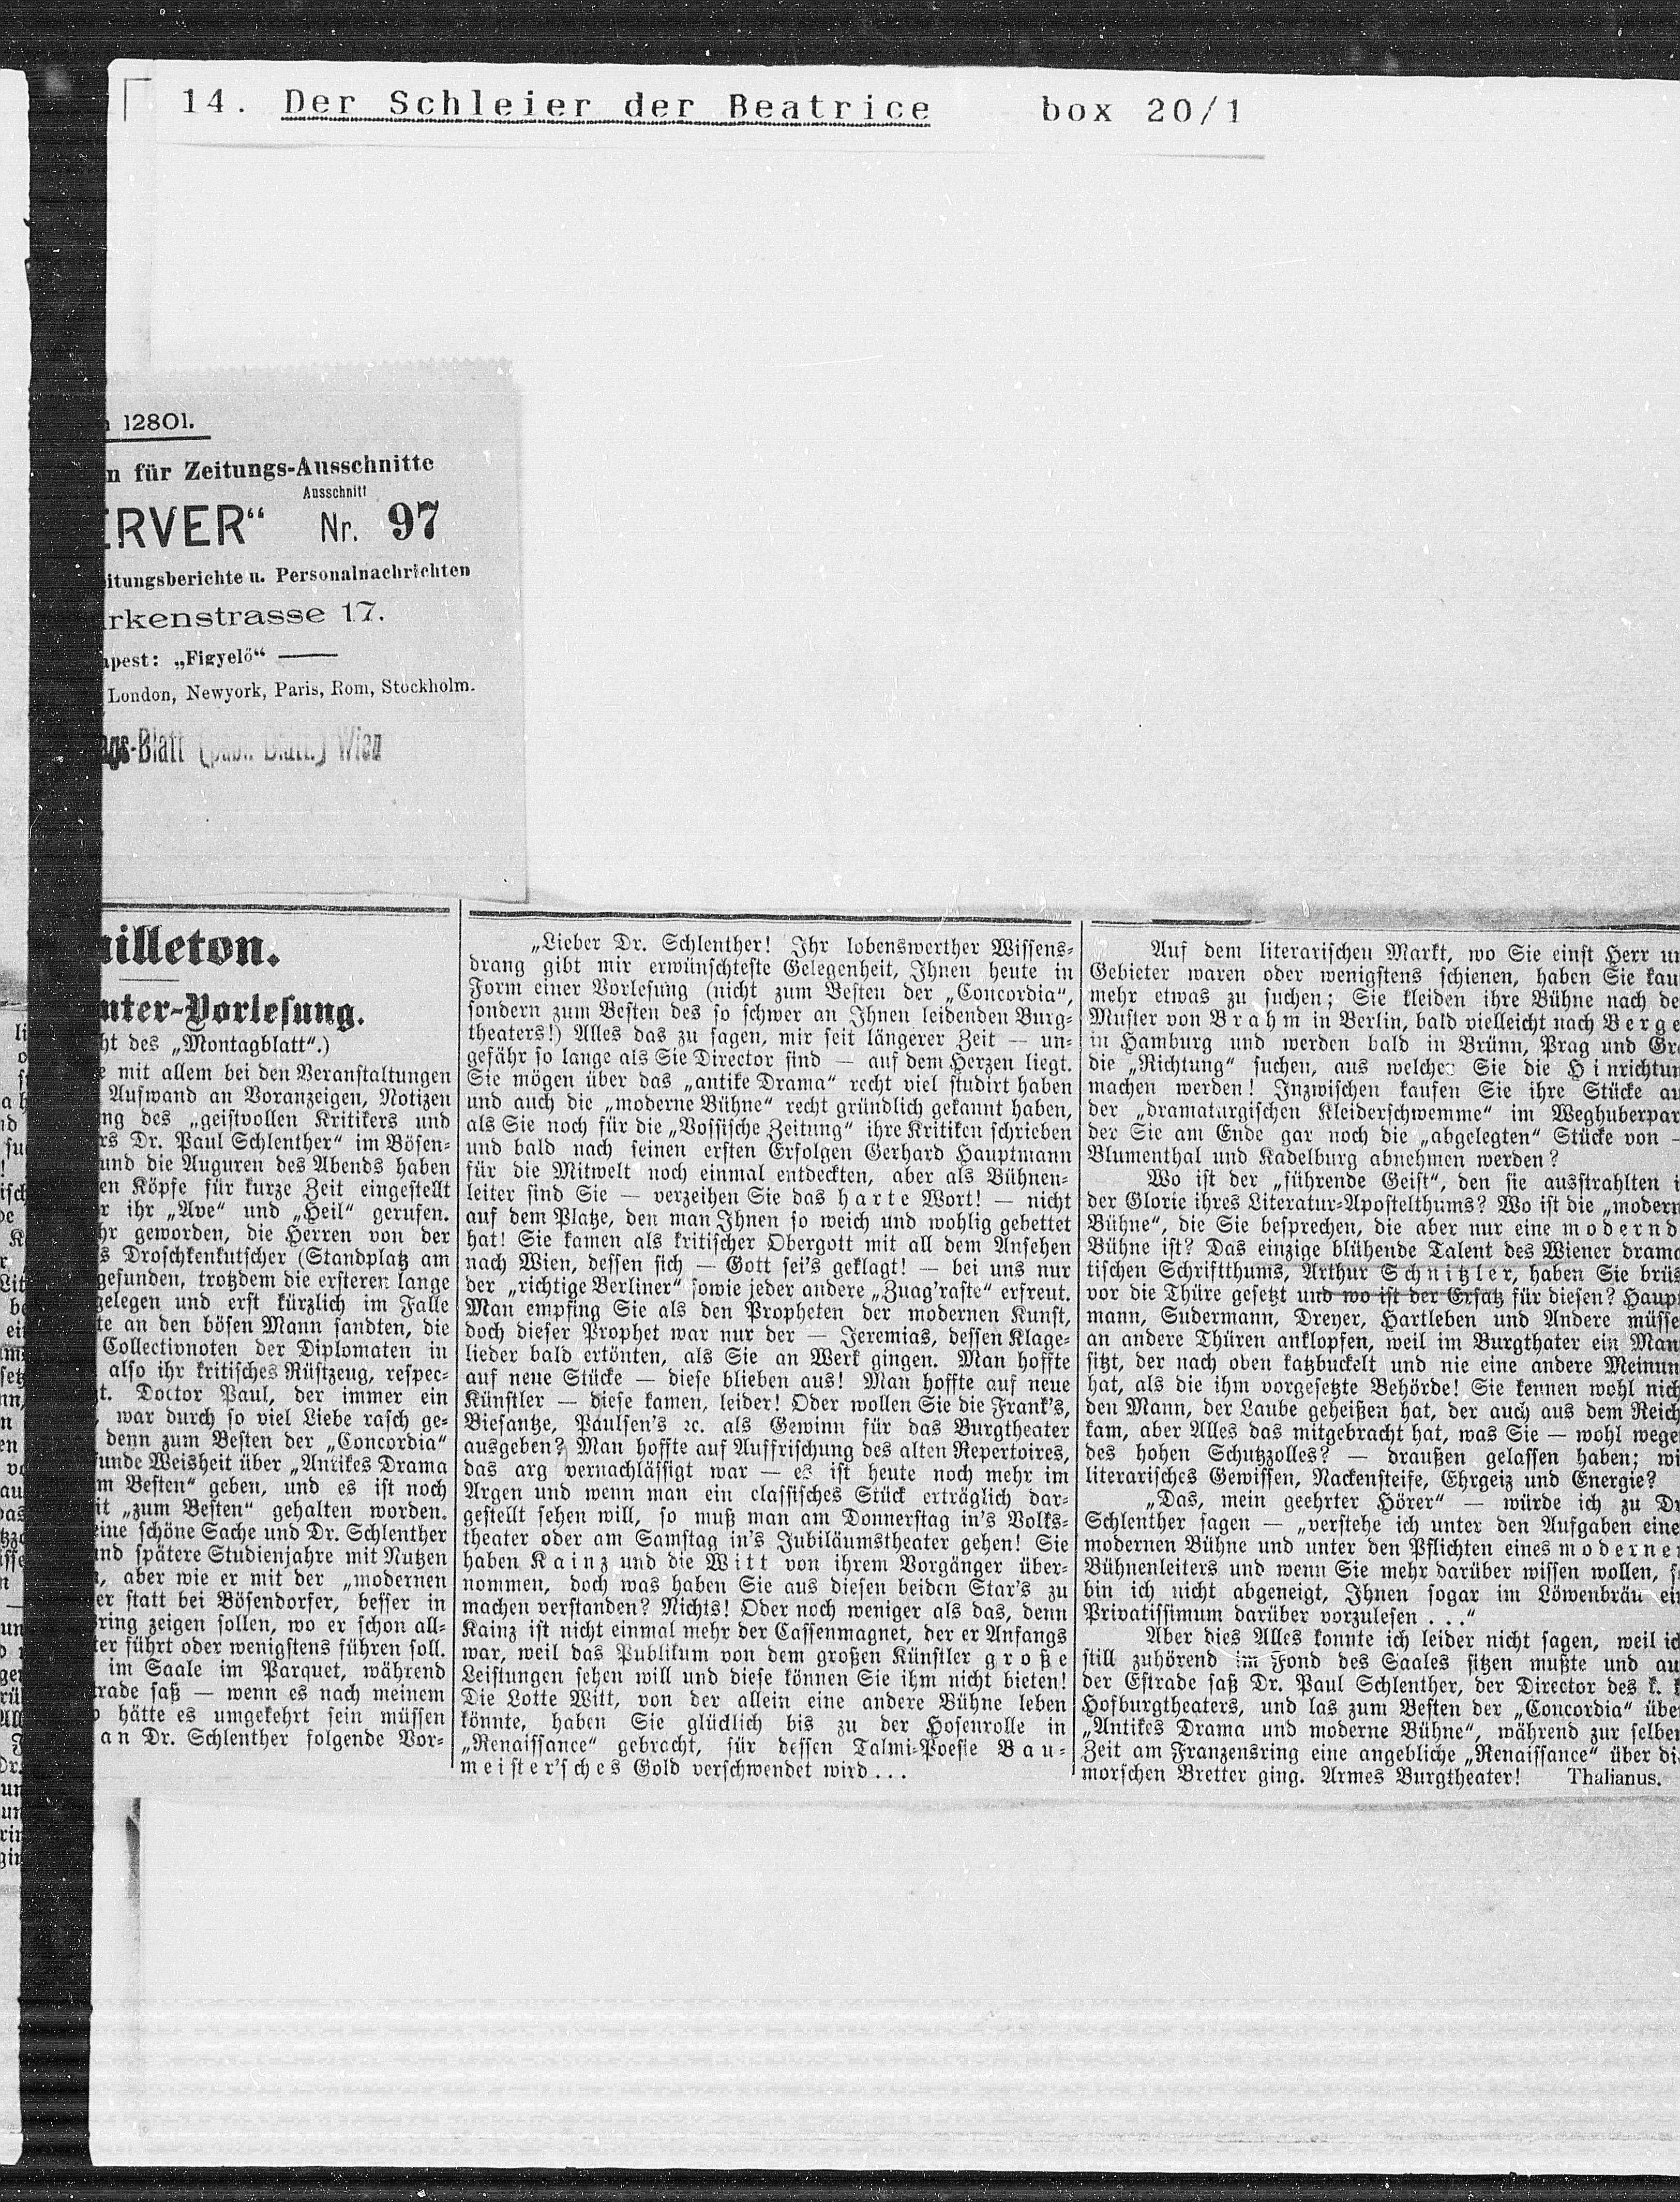 14. Der Schleier der Beatrice box 20/1
12801.
n für Zeitungs-Ausschnitte
Ausschnitt
ERVER“ Nr. 97
itungsberichte u. Personalnachrichten
rkenstrasse 17.
apest: „Figyelő“ ——
London, Newyork, Paris, Rom, Stockholm.
ags-Blatt Wien
uilleton.
nter-Vorlesung.
ht des „Montagblatt“.)
e mit allem bei den Veranstaltungen
Aufwand an Voranzeigen, Notizen
ng des „geistvollen Kritikers und
rs Dr. Paul Schlenther“ im Bösen-
und die Auguren des Abends haben
en Köpfe für kurze Zeit eingestellt
r ihr „Ave“ und „Heil“ gerufen.
hr geworden, die Herren von der
s Droschkenkutscher (Standplatz am
gefunden, trotzdem die ersteren lange
gelegen und erst kürzlich im Falle
te an den bösen Mann sandten, die
Collectivnoten der Diplomaten in
also ihr kritisches Rüstzeug, respec-
t. Doctor Paul, der immer ein
, war durch so viel Liebe rasch ge-
denn zum Besten der „Concordia“
unde Weisheit über „Antikes Drama
m Besten“ geben, und es ist noch
it „zum Besten“ gehalten worden.
eine schöne Sache und Dr. Schlenther
und spätere Studienjahre mit Nutzen
, aber wie er mit der „modernen
er statt bei Bösendorfer, besser in
ring zeigen sollen, wo er schon all-
ter führt oder wenigstens führen soll.
im Saale im Parquet, während
rade saß — wenn es nach meinem
hätte es umgekehrt sein müssen
an Dr. Schlenther folgende Vor-
„Lieber Dr. Schlenther! Ihr lobenswerther Wissens-
drang gibt mir erwünschteste Gelegenheit, Ihnen heute in
Form einer Vorlesung (nicht zum Besten der „Concordia“,
sondern zum Besten des so schwer an Ihnen leidenden Burg-
theaters!) Alles das zu sagen, mir seit längerer Zeit — un-
gefähr so lange als Sie Director sind — auf dem Herzen liegt.
Sie mögen über das „antike Drama“ recht viel studirt haben
und auch die „moderne Bühne“ recht gründlich gekannt haben,
als Sie noch für die „Vossische Zeitung“ ihre Kritiken schrieben
und bald nach seinen ersten Erfolgen Gerhard Hauptmann
für die Mitwelt noch einmal entdeckten, aber als Bühnen-
leiter sind Sie — verzeihen Sie das harte Wort! — nicht
auf dem Platze, den man Ihnen so weich und wohlig gebettet
hat! Sie kamen als kritischer Obergott mit all dem Ansehen
nach Wien, dessen sich — Gott sei's geklagt! — bei uns nur
der „richtige Berliner“ sowie jeder andere „Zuag'raste“ erfreut.
Man empfing Sie als den Propheten der modernen Kunst,
doch dieser Prophet war nur der — Jeremias, dessen Klage-
lieder bald ertönten, als Sie an Werk gingen. Man hoffte
auf neue Stücke — diese blieben aus! Man hoffte auf neue
Künstler — diese kamen, leider! Oder wollen Sie die Frank's,
Biesantze, Paulsen's 2c. als Gewinn für das Burgtheater
ausgeben? Man hoffte auf Auffrischung des alten Repertoires,
das arg vernachlässigt war — es ist heute noch mehr im
Argen und wenn man ein classisches Stück erträglich dar-
gestellt sehen will, so muß man am Donnerstag in's Volks-
theater oder am Samstag in's Jubiläumstheater gehen! Sie
haben Kainz und die Witt von ihrem Vorgänger über-
nommen, doch was haben Sie aus diesen beiden Star's zu
machen verstanden? Nichts! Oder noch weniger als das, denn
Kainz ist nicht einmal mehr der Cassenmagnet, der er Anfangs
war, weil das Publikum von dem großen Künstler große
Leistungen sehen will und diese können Sie ihm nicht bieten!
Die Lotte Witt, von der allein eine andere Bühne leben
könnte, haben Sie glücklich bis zu der Hosenrolle in
„Renaissance“ gebracht, für dessen Talmi-Poesie Bau-
meister'sches Gold verschwendet wird . . .
Auf dem literarischen Markt, wo Sie einst Herr un
Gebieter waren oder wenigstens schienen, haben Sie kau
mehr etwas zu suchen; Sie kleiden ihre Bühne nach de
Muster von Brahm in Berlin, bald vielleicht nach Berge
in Hamburg und werden bald in Brünn, Prag und Gra
die „Richtung“ suchen, aus welcher Sie die Hinrichtun
machen werden! Inzwischen kaufen Sie ihre Stücke au
der „dramaturgischen Kleiderschwemme“ im Weghuberpar
der Sie am Ende gar noch die „abgelegten“ Stücke von —
Blumenthal und Kadelburg abnehmen werden?
Wo ist der „führende Geist“, den sie ausstrahlten i
der Glorie ihres Literatur-Apostelthums? Wo ist die „modern
Bühne“, die Sie besprechen, die aber nur eine modernd
Bühne ist? Das einzige blühende Talent des Wiener drama
tischen Schriftthums, Arthur Schnitzler, haben Sie brüs
vor die Thüre gesetzt und wo ist der Ersatz für diesen? Haupt
mann, Sudermann, Dreyer, Hartleben und Andere müsse
an andere Thüren anklopfen, weil im Burgthater ein Man
sitzt, der nach oben katzbuckelt und nie eine andere Meinun
hat, als die ihm vorgesetzte Behörde! Sie kennen wohl nich
den Mann, der Laube geheißen hat, der auch aus dem Reich
kam, aber Alles das mitgebracht hat, was Sie — wohl wege
des hohen Schutzzolles? — draußen gelassen haben; wi
literarisches Gewissen, Nackensteife, Ehrgeiz und Energie?
„Das, mein geehrter Hörer“ — würde ich zu Dr
Schlenther sagen — „verstehe ich unter den Aufgaben eine
modernen Bühne und unter den Pflichten eines moderner
Bühnenleiters und wenn Sie mehr darüber wissen wollen, s
bin ich nicht abgeneigt, Ihnen sogar im Löwenbräu ein
Privatissimum darüber vorzulesen . . .“
Aber dies Alles konnte ich leider nicht sagen, weil ich
still zuhörend im Fond des Saales sitzen mußte und au
der Estrade saß Dr. Paul Schlenther, der Director des k. k
Hofburgtheaters, und las zum Besten der „Concordia“ übe
„Antikes Drama und moderne Bühne“, während zur selben
Zeit am Franzensring eine angebliche „Renaissance“ über di
morschen Bretter ging. Armes Burgtheater! Thalianus.